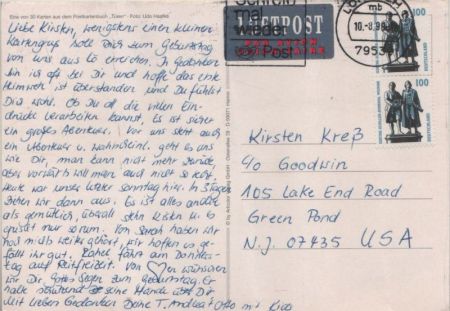 Eine von 30 Karten aus dem Postkartenbuch „Türen“ · Foto: Udo Haafke
Liebe Kirsten, wenigstens einen kleinen
Kartengruß soll Dich zum Geburtstag
von uns aus Lö erreichen. In Gedanken
bin ich oft bei Dir und hoffe das erste
Heimweh ist überstanden und Du fühlst
Dich wohl. Ob Du all die vielen Ein-
drücke verarbeiten kannst, Es ist sicher
ein großes Abenteuer. Vor uns steht auch
ein Abenteuer u. wahrscheinl. geht es uns
wie Dir, man kann nicht mehr zurück,
aber vorwärts will man auch nicht so recht.
Heute war unser letzter Sonntag hier. In 3 Tagen
ziehen wir dann aus. Es ist alles andere
als gemütlich, überall stehn Kisten u. es
nur so rum. Von Sarah haben wir
noch nichts weiter gehört, wir hoffen es ge-
fällt ihr gut. Rahel fährt am Donners-
tag auf Reitfreizeit. Von ♡en wünschen
wir Dir Gottes Segen zum Geburtstag. Er
halte schützend seine Hände über Dir
Mit lieben Gedanken Deine T. Andrea + Otto mit Kids
wieder
Post
LUFTPOST
PAR AVION
10.-8.98
mb
79539
100
DEUTSCHLAND
100
DEUTSCHLAND
Kirsten Kreß
c/o Goodwin
105 Lake End Road
Green Pond
N.J. 07435 USA